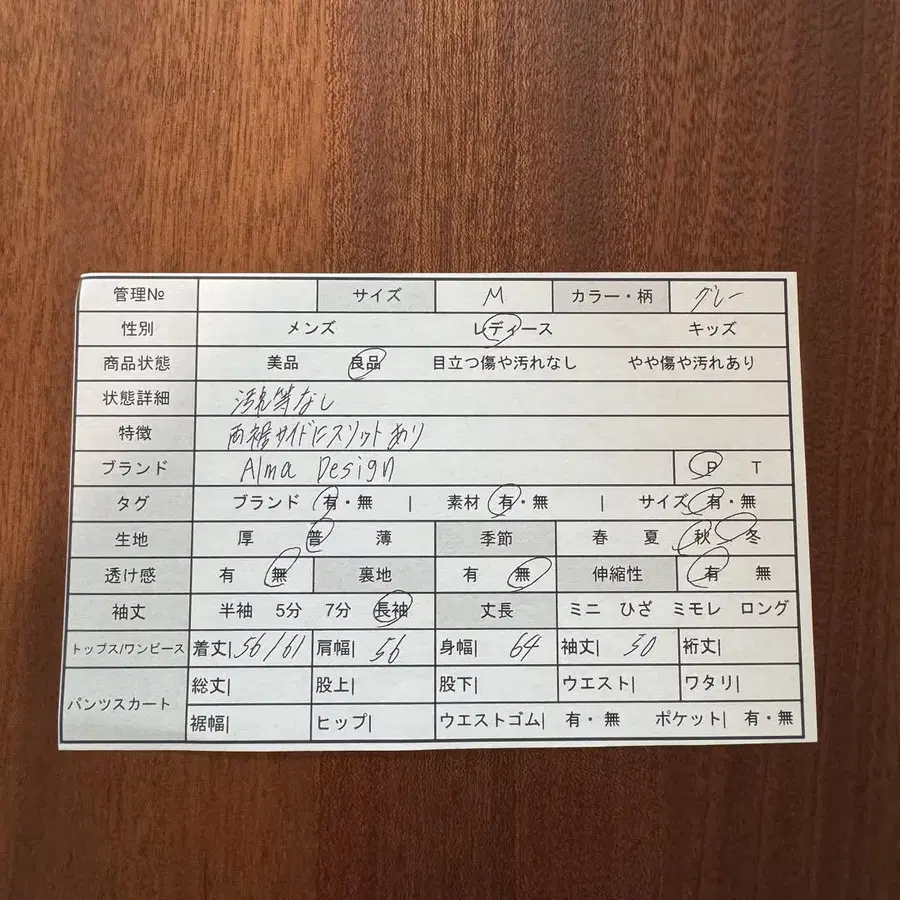 管理№ サイズ M カラー・柄 グレー
性別 メンズ レディース キッズ
商品状態 美品 良品 目立つ傷や汚れなし やや傷や汚れあり
状態詳細 汚れ等なし
特徴 両裾サイドにスリットあり
ブランド Alma Design P T
タグ ブランド 有・無 | 素材 有・無 | サイズ 有・無
生地 厚 普 薄 季節 春 夏 秋 冬
透け感 有 無 裏地 有 無 伸縮性 有 無
袖丈 半袖 5分 7分 長袖 丈長 ミニ ひざ ミモレ ロング
トップス/ワンピース 着丈| 56/61 肩幅| 56 身幅| 64 袖丈| 50 裄丈|
パンツスカート 総丈| 股上| 股下| ウエスト| ワタリ|
裾幅| ヒップ| ウエストゴム| 有・無 ポケット| 有・無